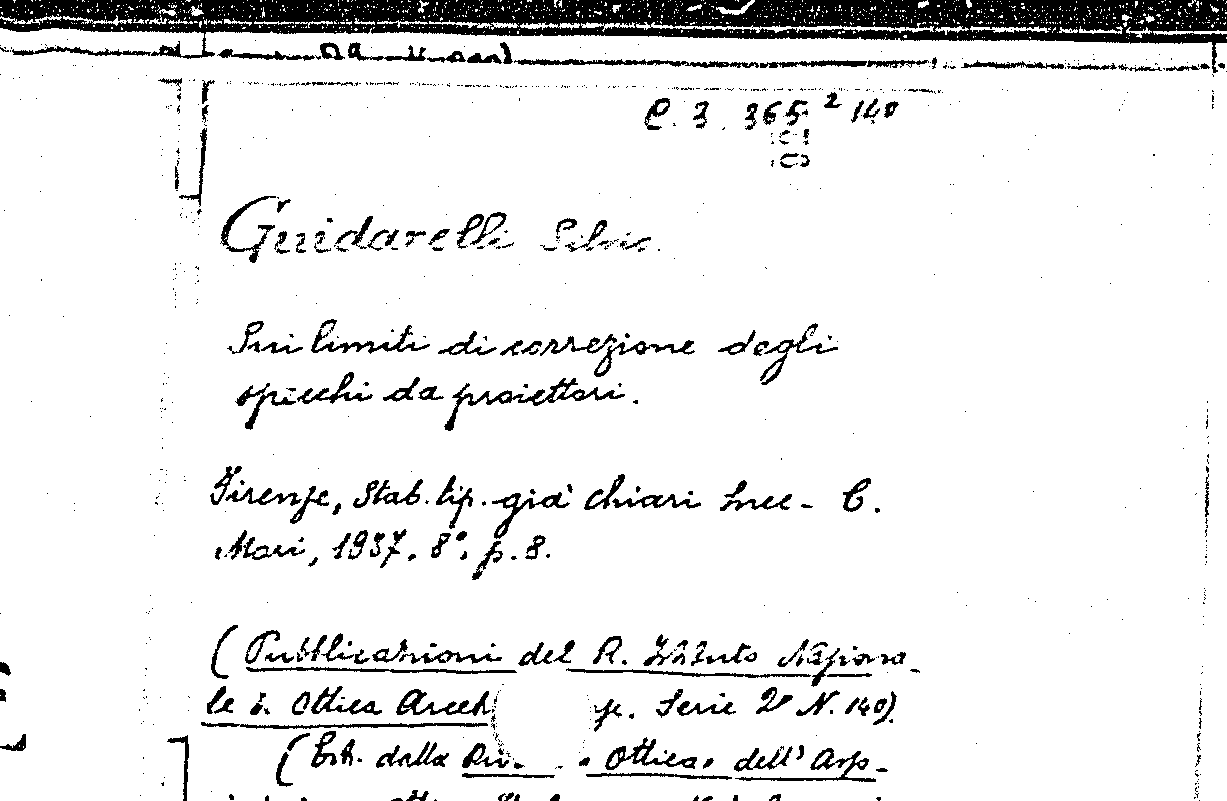 C. 3. 365² 140
Guidarelli Silvio.
Sui limiti di correzione degli
specchi da proiettori.
Firenze, Stab. tip. già Chiari Succ. C.
Mori, 1937. 8°. p. 8.
(Pubblicazioni del R. Istituto Naziona-
le di Ottica Arcet Serie 2ª N. 140).
(Estr. dalla Ottica, dell'Asso-